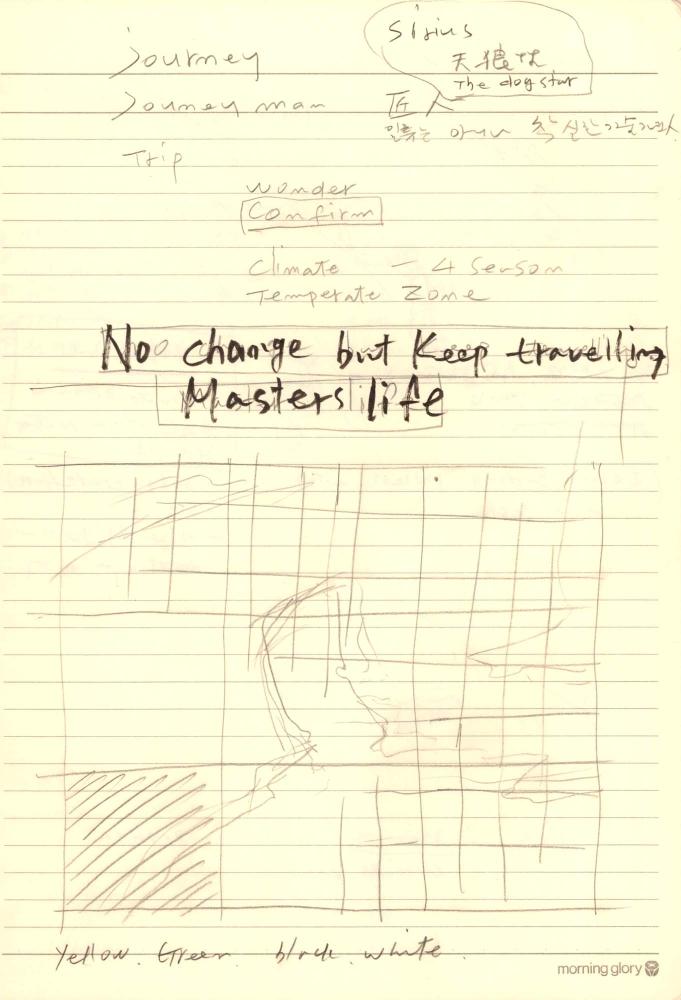 Sirius
天狼
The dog star
Journey
Journey man
匠人
일류는 아니나 착실한 기술
Trip
Wonder
Confirm
Climate - 4 Season
Temperate Zone
No change but Keep travelling
Masters life
Yellow. Green. black. white.
morning glory